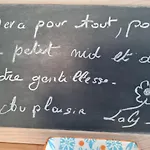 era pour tout, po
petit mot et d
tre gentillesse.
du plaisir